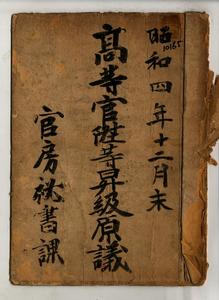 昭和四年十二月末
10165
高等官陞等昇級原議
官房秘書課